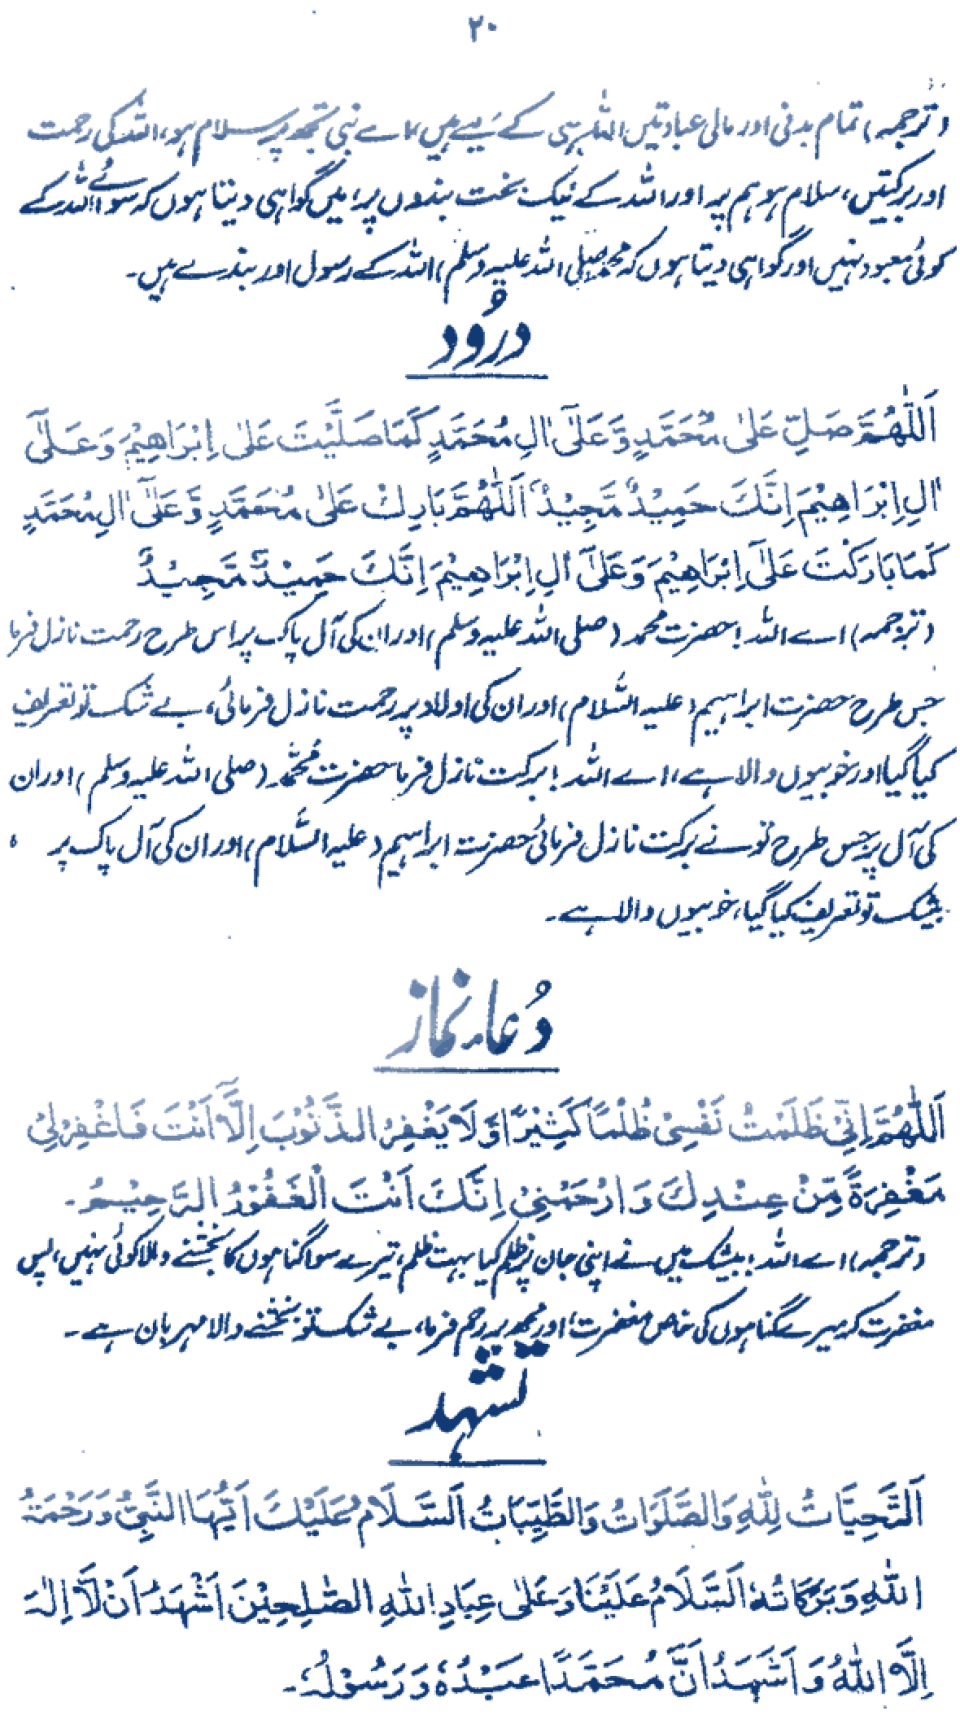 ۲۰
(ترجمہ) تمام بدنی اور مالی عبادتیں اللہ ہی کے لیے ہیں، اے نبی تجھ پر سلام ہو، اللہ کی رحمت
اور برکتیں، سلام ہو ہم پر اور اللہ کے نیک بخت بندوں پر، میں گواہی دیتا ہوں کہ سوائے اللہ کے
کوئی معبود نہیں اور گواہی دیتا ہوں کہ محمد (صلی اللہ علیہ وسلم) اللہ کے رسول اور بندے ہیں۔
درُود
اَللّٰهُمَّ صَلِّ عَلٰى مُحَمَّدٍ وَّعَلٰٓى اٰلِ مُحَمَّدٍ كَمَا صَلَّيْتَ عَلٰى اِبْرَاهِيْمَ وَعَلٰٓى
اٰلِ اِبْرَاهِيْمَ اِنَّكَ حَمِيْدٌ مَّجِيْدٌ اَللّٰهُمَّ بَارِكْ عَلٰى مُحَمَّدٍ وَّعَلٰٓى اٰلِ مُحَمَّدٍ
كَمَا بَارَكْتَ عَلٰٓى اِبْرَاهِيْمَ وَعَلٰٓى اٰلِ اِبْرَاهِيْمَ اِنَّكَ حَمِيْدٌ مَّجِيْدٌ
(ترجمہ) اے اللہ! حضرت محمد (صلی اللہ علیہ وسلم) اور ان کی آل پاک پر اس طرح رحمت نازل فرما
جس طرح حضرت ابراہیم (علیہ السّلام) اور ان کی اولاد پر رحمت نازل فرمائی، بے شک تو تعریف
کیا گیا اور خوبیوں والا ہے، اے اللہ! برکت نازل فرما حضرت محمّد (صلی اللہ علیہ وسلم) اور ان
کی آل پر جس طرح تو نے برکت نازل فرمائی حضرت ابراہیم (علیہ السّلام) اور ان کی آل پاک پر،
بیشک تو تعریف کیا گیا، خوبیوں والا ہے۔
دُعاء نماز
اَللّٰهُمَّ اِنِّيْ ظَلَمْتُ نَفْسِيْ ظُلْمًا كَثِيْرًا وَّلَا يَغْفِرُ الذُّنُوْبَ اِلَّآ اَنْتَ فَاغْفِرْلِيْ
مَغْفِرَةً مِّنْ عِنْدِكَ وَارْحَمْنِيْ اِنَّكَ اَنْتَ الْغَفُوْرُ الرَّحِيْمُ۔
(ترجمہ) اے اللہ! بیشک میں نے اپنی جان پر ظلم کیا بہت ظلم، تیرے سوا گناہوں کا بخشنے والا کوئی نہیں، پس
مغفرت کر میرے گناہوں کی خاص مغفرت، اور مجھ پر رحم فرما، بے شک تو بخشنے والا مہربان ہے۔
تشہد
اَلتَّحِيَّاتُ لِلّٰهِ وَالصَّلَوَاتُ وَالطَّيِّبَاتُ اَلسَّلَامُ عَلَيْكَ اَيُّهَا النَّبِيُّ وَرَحْمَةُ
اللّٰهِ وَبَرَكَاتُهٗ اَلسَّلَامُ عَلَيْنَا وَعَلٰى عِبَادِ اللّٰهِ الصّٰلِحِيْنَ اَشْهَدُ اَنْ لَّآ اِلٰهَ
اِلَّا اللّٰهُ وَاَشْهَدُ اَنَّ مُحَمَّدًا عَبْدُهٗ وَرَسُوْلُهٗ۔